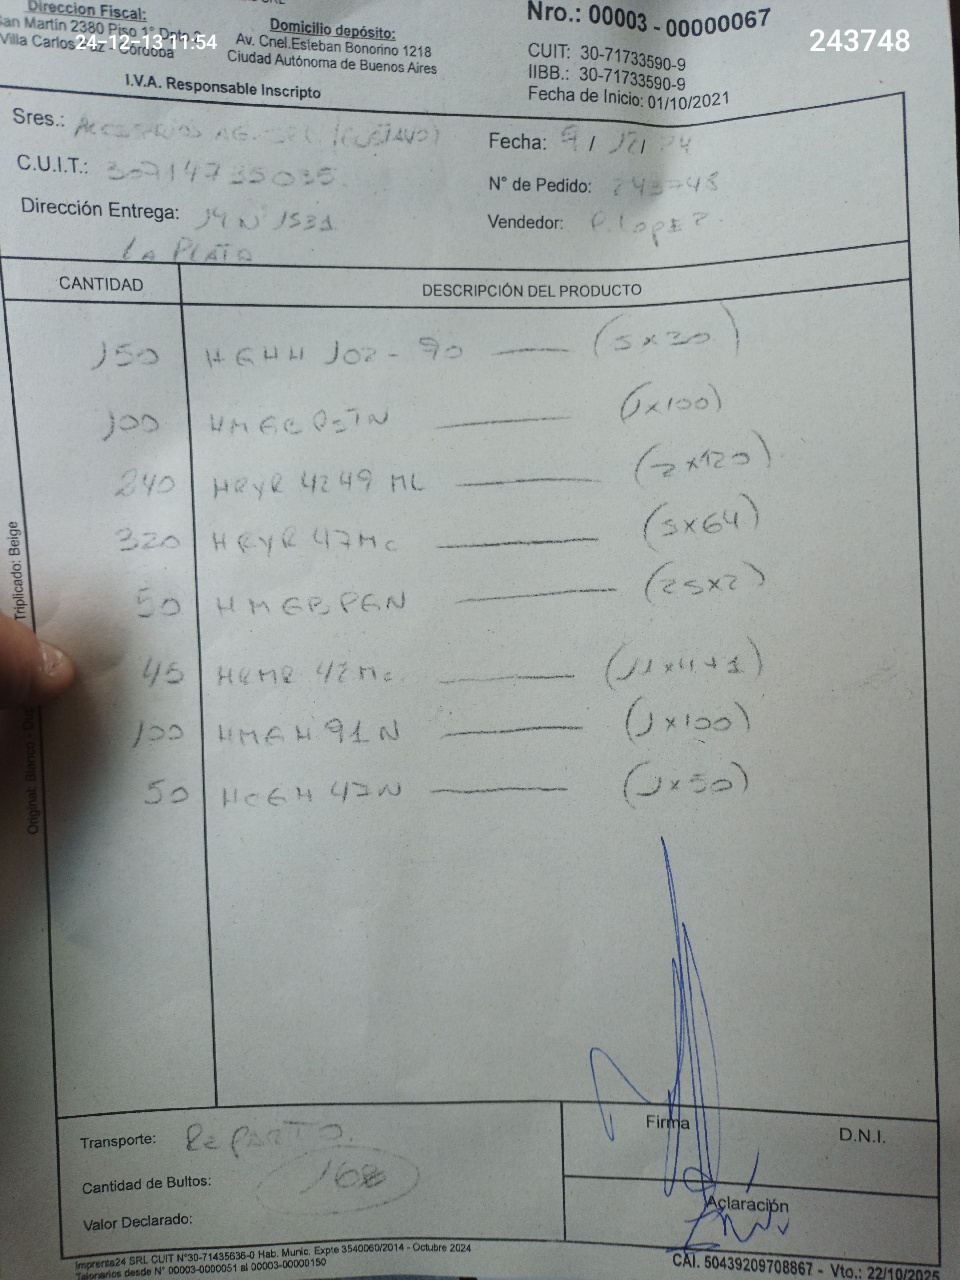 Dirección Fiscal:
San Martín 2380 Piso 1°
Villa Carlos Paz - Córdoba
24-12-13 11:54
Domicilio depósito:
Av. Cnel.Esteban Bonorino 1218
Ciudad Autónoma de Buenos Aires
I.V.A. Responsable Inscripto
Nro.: 00003 - 00000067
243748
CUIT: 30-71733590-9
IIBB.: 30-71733590-9
Fecha de Inicio: 01/10/2021
Sres.: ACCESORIOS (GUSTAVO)
Fecha: 9 / 12 / 24
C.U.I.T.: 30714735035
N° de Pedido: 243748
Dirección Entrega: 14 N° 1531
LA PLATA
Vendedor: P. LOPEZ
CANTIDAD DESCRIPCIÓN DEL PRODUCTO
150 HGHH 102 - 90 (5x30)
100 (1x100)
240 HRYR 4249 ML (2x120)
320 HRYR 47MC (5x64)
50 (25x2)
45 HRMR 42MC (11x4+1)
100 HMGH 91N (1x100)
50 HCGH 47N (1x50)
Triplicado: Beige
Original: Blanco
Transporte: REPARTO.
Cantidad de Bultos: 168
Valor Declarado:
Firma
D.N.I.
Aclaración
Imprenta24 SRL CUIT N°30-71435636-0 Hab. Munic. Expte 3540060/2014 - Octubre 2024
Talonarios desde N° 00003-0000051 al 00003-00000150
CAI. 50439209708867 - Vto.: 22/10/2025